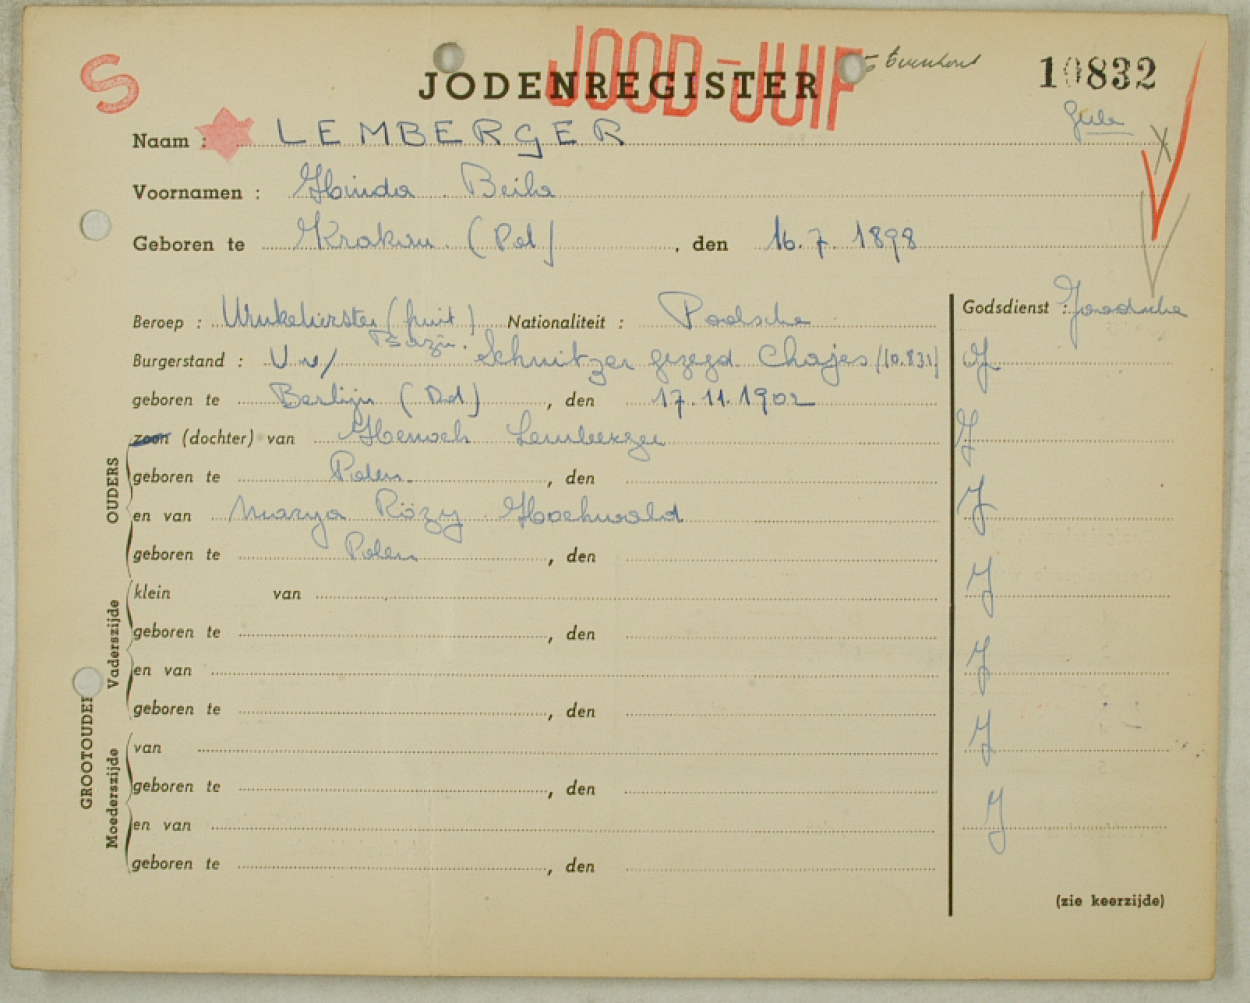 S
JOOD-JUIF
JODENREGISTER
10832
Naam : LEMBERGER
Voornamen : Hinda Beila
Geboren te Krakau (Pol) , den 16.7.1898
Beroep : Winkelierster (fruit) Nationaliteit : Poolsche
Godsdienst : Joodsche
Burgerstand : V.v/ Schnitzer gezegd Chajes (10.831) J
geboren te Berlijn (Dd) , den 17.11.1902
zoon (dochter) van Hersch Lemberger J
OUDERS
geboren te Polen. , den
en van Marya Rözy Hochwald J
geboren te Polen , den
klein van J
geboren te , den
Vaderszijde
en van J
geboren te , den
GROOTOUDER
van J
Moederszijde
geboren te , den
en van J
geboren te , den
(zie keerzijde)